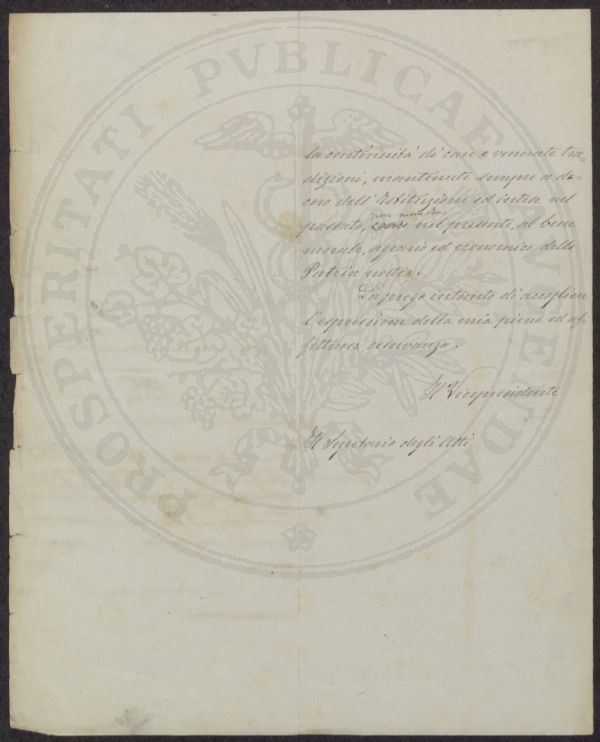 PROSPERITATI PVBLICAE AVGENDAE
la continuità di care e venerate tra-
dizioni, mantenute sempre a de-
coro dell'Istituzione ed intese nel
non meno che
passato, nel presente, al bene
morale, agrario ed economico della
Patria nostra.
La prego intanto di accogliere
l'espressione della mia piena ed af-
fettuosa osservanza.
Il Vicepresidente
Il Segretario degli Atti